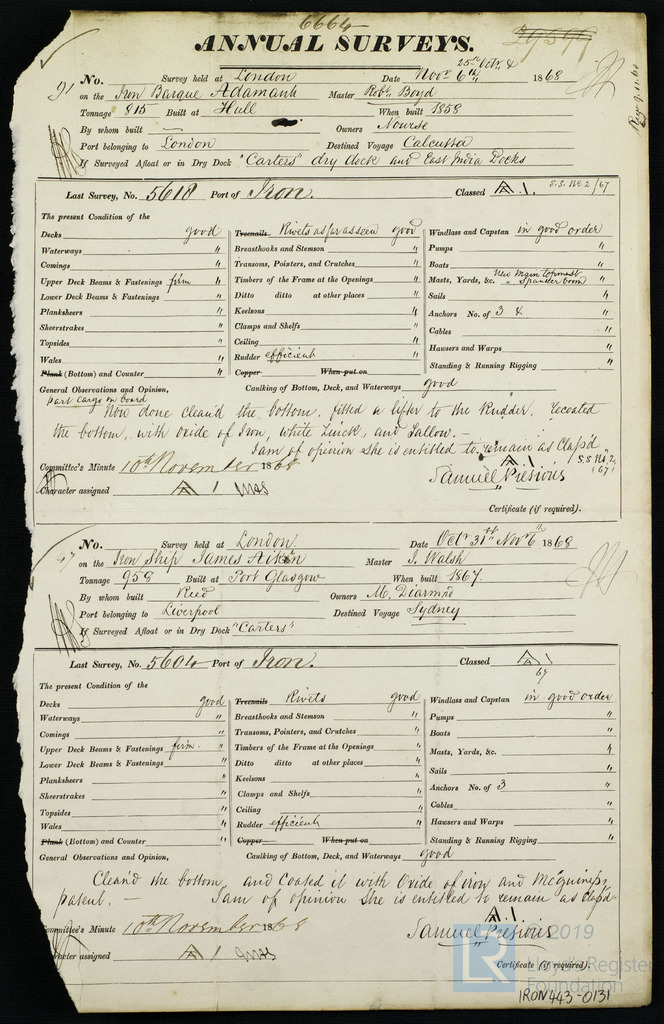 6664
ANNUAL SURVEYS.
29599
91 No. Survey held at London Date 25th Octr & Novr 6th 1868
on the Iron Barque Adamant Master Robt. Boyd
Tonnage 815 Built at Hull When built 1858
By whom built — Owners Nourse
Port belonging to London Destined Voyage Calcutta
If Surveyed Afloat or in Dry Dock "Carters" dry dock and East India Docks
Last Survey, No. 5618 Port of Iron. Classed A.1. S.S. No. 2/67
The present Condition of the
Decks good Treenails Rivets as far as seen good Windlass and Capstan in good order
Waterways " Breasthooks and Stemson " Pumps "
Comings " Transoms, Pointers, and Crutches " Boats "
Upper Deck Beams & Fastenings firm " Timbers of the Frame at the Openings " Masts, Yards, &c. New Main topmast " Spanker boom "
Lower Deck Beams & Fastenings " Ditto ditto at other places " Sails "
Planksheers " Keelsons " Anchors No. of 3 & "
Sheerstrakes " Clamps and Shelfs " Cables "
Topsides " Ceiling " Hawsers and Warps "
Wales " Rudder efficient Standing & Running Rigging "
Plank (Bottom) and Counter " Copper When put on
General Observations and Opinion, Caulking of Bottom, Deck, and Waterways good
part cargo on board
Now done clean'd the bottom, fitted a lifter to the Rudder, recoated
the bottom, with oxide of Iron, white Zinck, and Tallow. —
I am of opinion she is entitled to remain as Class'd
A.1. S.S No. 2, (67)
Committee's Minute 10th November 1868 Samuel Presious
Character assigned A 1
Certificate (if required).
47 No. Survey held at London Date Octr 31st Novr 6th 1868
on the Iron Ship James Aiken Master J. Walsh
Tonnage 958 Built at Port Glasgow When built 1867.
By whom built Reed Owners M. Diarmid
Port belonging to Liverpool Destined Voyage Sydney
If Surveyed Afloat or in Dry Dock "Carters"
Last Survey, No. 5604 Port of Iron. Classed A 1 67
The present Condition of the
Decks good Treenails Rivets good Windlass and Capstan in good order
Waterways " Breasthooks and Stemson " Pumps "
Comings " Transoms, Pointers, and Crutches " Boats "
Upper Deck Beams & Fastenings firm. " Timbers of the Frame at the Openings " Masts, Yards, &c. "
Lower Deck Beams & Fastenings " Ditto ditto at other places " Sails "
Planksheers " Keelsons " Anchors No. of 3 "
Sheerstrakes " Clamps and Shelfs " Cables "
Topsides " Ceiling " Hawsers and Warps "
Wales " Rudder efficient " Standing & Running Rigging "
Plank (Bottom) and Counter " Copper When put on
General Observations and Opinion, Caulking of Bottom, Deck, and Waterways good
Clean'd the bottom, and Coated it with Oxide of iron and McGuiness
patent. — I am of opinion she is entitled to remain as class'd
A.1.
Committee's Minute 10th November 1868 Samuel Presious
Character assigned A 1
Certificate (if required).
LR © 2019
Lloyd's Register
Foundation
IRON443-0131